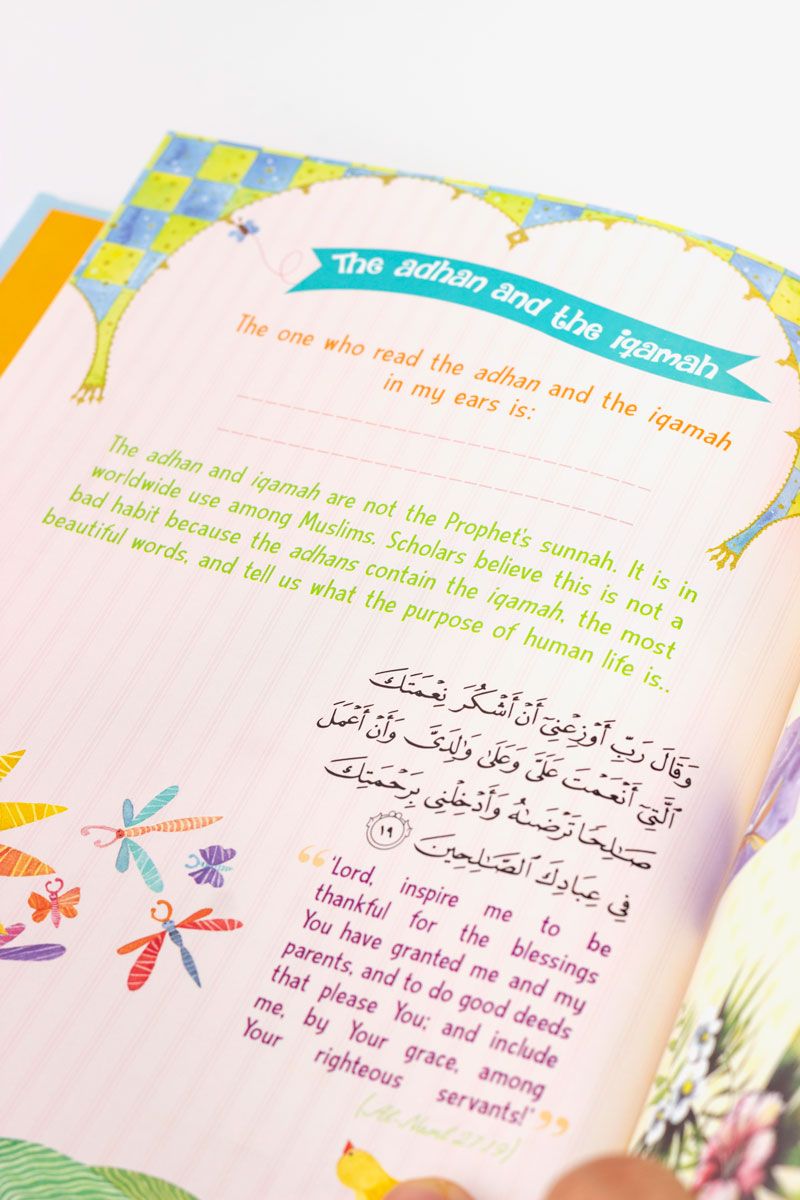 The adhan and the iqamah
The one who read the adhan and the iqamah
in my ears is:
The adhan and iqamah are not the Prophet's sunnah. It is in
worldwide use among Muslims. Scholars believe this is not a
bad habit because the adhans contain the iqamah, the most
beautiful words, and tell us what the purpose of human life is..
وَقَالَ رَبِّ أَوْزِعْنِىٓ أَنْ أَشْكُرَ نِعْمَتَكَ
ٱلَّتِىٓ أَنْعَمْتَ عَلَىَّ وَعَلَىٰ وَٰلِدَىَّ وَأَنْ أَعْمَلَ
صَـٰلِحًا تَرْضَىٰهُ وَأَدْخِلْنِى بِرَحْمَتِكَ
فِى عِبَادِكَ ٱلصَّـٰلِحِينَ ١٩
“'Lord, inspire me to be
thankful for the blessings
You have granted me and my
parents, and to do good deeds
that please You; and include
me, by Your grace, among
Your righteous servants!'”
(An-Naml 27:19)